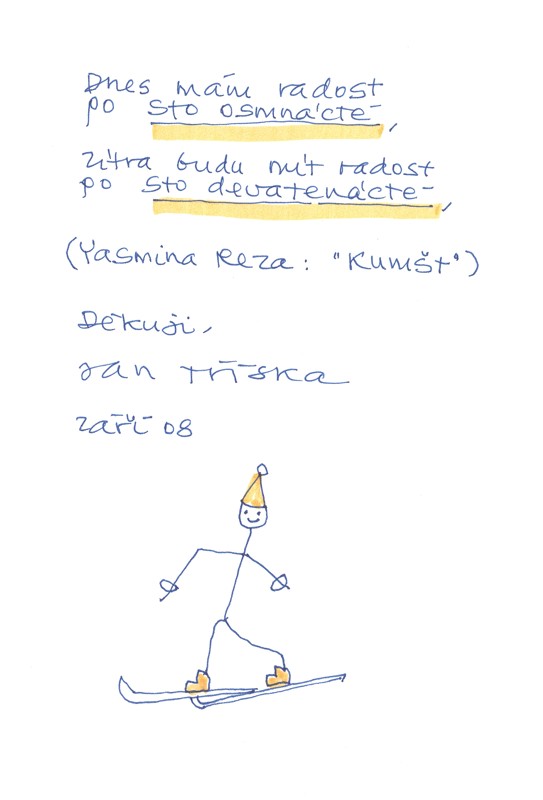 Dnes mám radost
po sto osmnácté,
zítra budu mít radost
po sto devatenácté,
(Yasmina Reza: "Kumšt")
Děkuji,
Jan Tříska
září 08